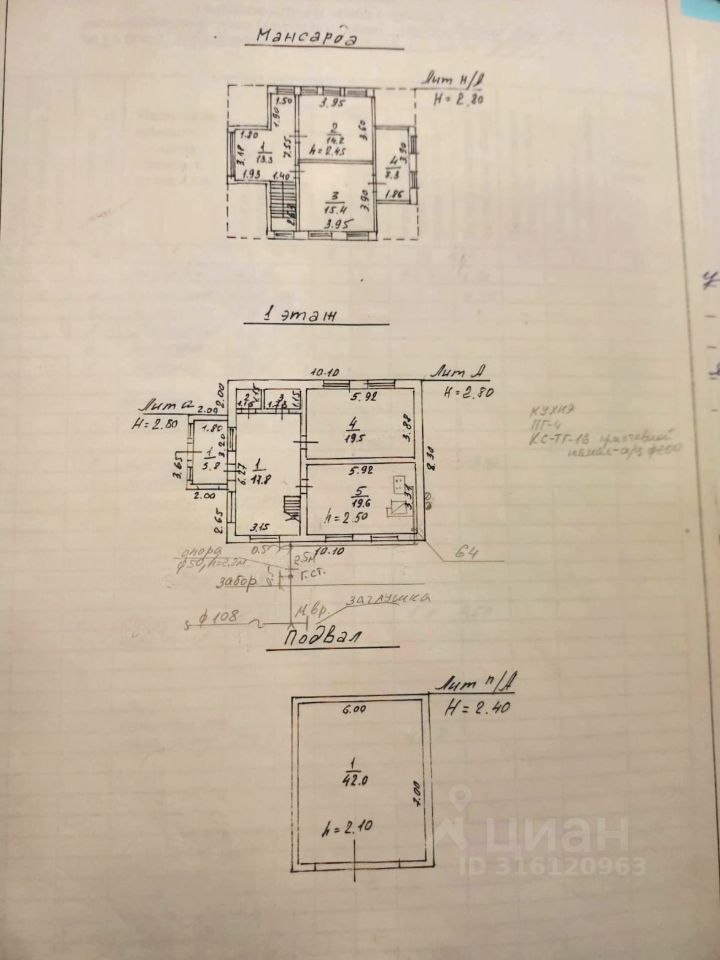 Мансарда
Лит н/А
H = 2.80
1.50
3.95
1.90
1.80
2
14.2
3.60
h = 2.45
1
13.3
7.55
3.18
1.93
1.40
4
7.3
3.90
1.86
3
15.4
3.90
2.63
3.95
1 этаж
10.10
Лит А
H = 2.80
Лит а
H = 2.80
2.00
2.00
1.15
1.15
5.92
4
19.5
3.88
8.30
1.80
3.20
1
5.8
3.65
2.00
6.27
1
17.8
5.92
5
19.6
3.31
h = 2.50
2.65
3.15
10.10
КУХНЯ
ПГ-4
0.5
опора
2.5м
Г.ст.
забор
64
ф 108
заглушка
Подвал
Лит п/А
H = 2.40
6.00
1
42.0
7.00
h = 2.10
циан
ID 316120963